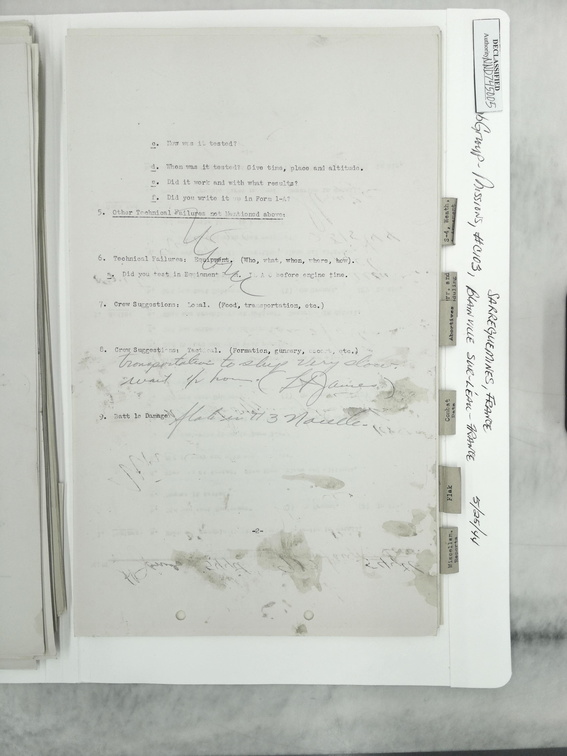 c. How was it tested?
d. When was it tested? Give time, place and altitude.
e. Did it work and with what results?
f. Did you write it up in Form 1-A?
5. Other Technical Failures not Mentioned above:
6. Technical Failures: Equipment. (Who, what, when, where, how).
Did you test in Equipment before engine time.
7. Crew Suggestions: Local. (Food, transportation, etc.)
8. Crew Suggestions: Tactical. (Formation, gunnery, escort, etc.)
transportation to ship very slow.
wait ½ hour
9. Battle Damage flak in #3 Nacelle.
-2-
DECLASSIFIED
Authority NND745005
Group - Missions,
SARREGUEMINES, FRANCE
BLAINVILLE SUR-L'EAU - FRANCE
5/25/44
Abortives
Combat
Flak
Miscellan.